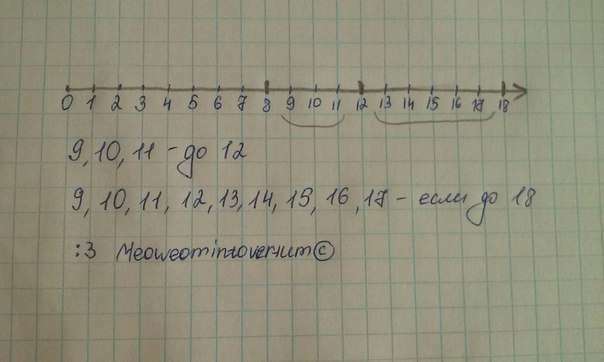 0 1 2 3 4 5 6 7 8 9 10 11 12 13 14 15 16 17 18
9, 10, 11 - до 12
9, 10, 11, 12, 13, 14, 15, 16, 17 - если до 18
:3 ©